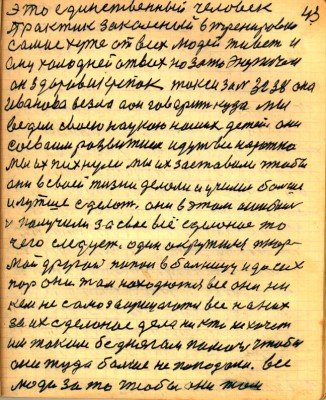 43
это единственный человек
практик закаленый в тренировке
самые хуже от всех людей живет и
ему холодней от всех но зато энузиазм
он здоровый крепок так сказал
Иванова везла а он говорит куда мы
ведем свою наукою наших детей они
совсем развитием идут не коротко
мы их пихнули мы их заставили чтобы
они в своей жизни делали и учились больше
и лутше сделать. они в этом ошиблись
и получили за свое всё сделаное то
чего следует. один окрутился тюр-
мой другой попов в больницу и до сих
пор они там находются все они ни
кем не само защищаюти все на них
за их сделаное дела ни кто ни хочет
им таким беднягам помочь чтобы
они туда больше не попадали. все
люди за то чтобы они там